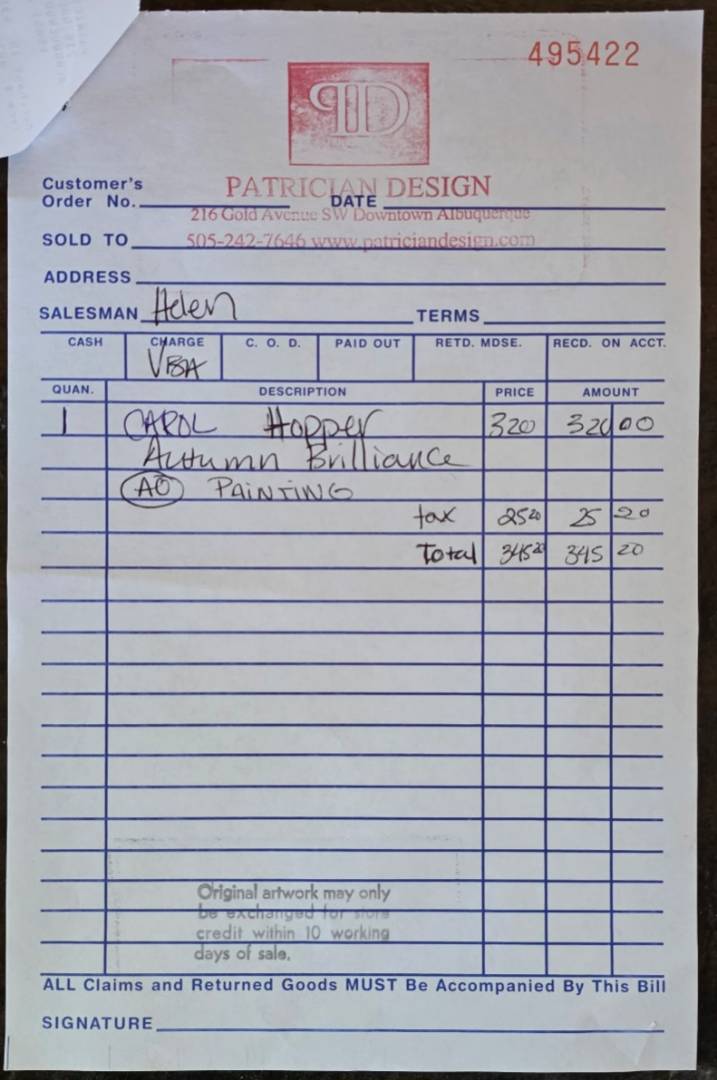 495422
PD
PATRICIAN DESIGN
Customer's
Order No. DATE
216 Gold Avenue SW Downtown Albuquerque
SOLD TO
505-242-7646 www.patriciandesign.com
ADDRESS
SALESMAN Helen TERMS
CASH CHARGE C. O. D. PAID OUT RETD. MDSE. RECD. ON ACCT.
VISA
QUAN. DESCRIPTION PRICE AMOUNT
1 CAROL Hopper 320 320 00
Autumn Brilliance
AO PAINTING
tax 25 20 25 20
Total 345 20 345 20
Original artwork may only
be exchanged for store
credit within 10 working
days of sale.
ALL Claims and Returned Goods MUST Be Accompanied By This Bill
SIGNATURE